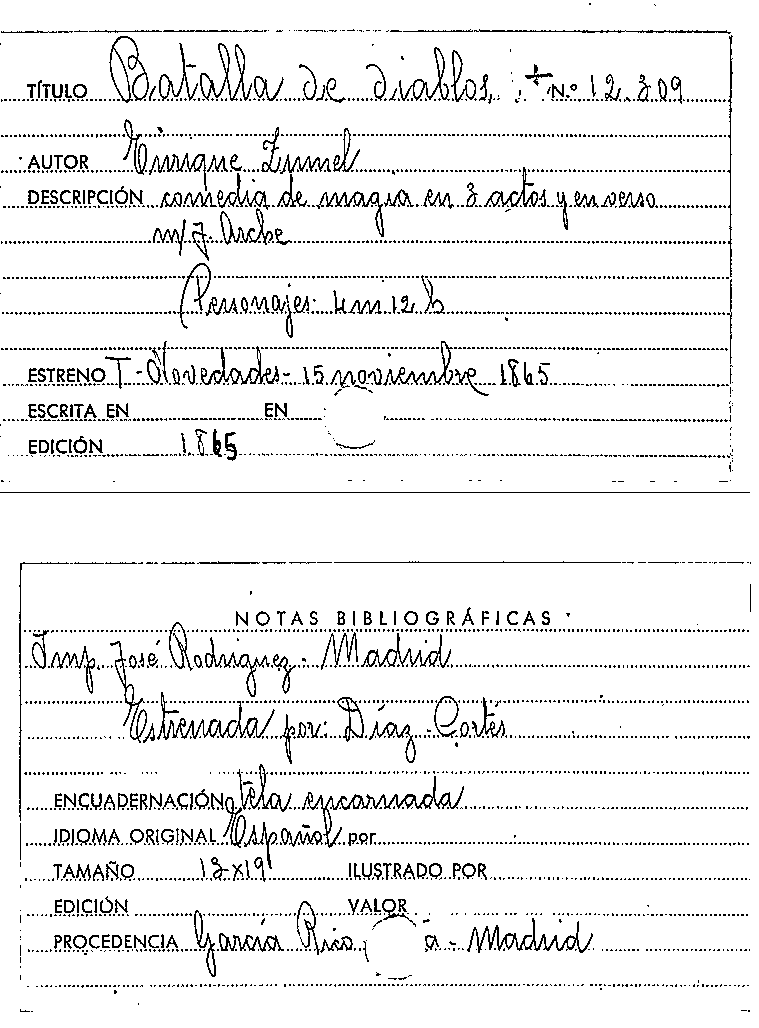 TÍTULO Batalla de diablos. N.º 12.309
AUTOR Enrique Zumel
DESCRIPCIÓN comedia de magia en 3 actos y en verso
m/ J. Arche
Personajes. 4 m 12 h
ESTRENO T-Novedades-15 noviembre 1865
ESCRITA EN EN
EDICIÓN 1865
NOTAS BIBLIOGRÁFICAS
Imp. José Rodriguez. Madrid
Estrenada por: Díaz-Cortés
ENCUADERNACIÓN tela encarnada
IDIOMA ORIGINAL Español por
TAMAÑO 13x19 ILUSTRADO POR
EDICIÓN VALOR
PROCEDENCIA García Rico, a - Madrid